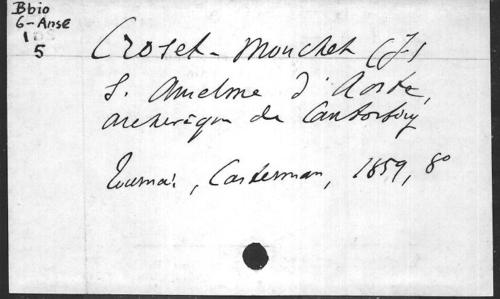 Bbio
6-Anse
1
5
Croset-Mouchet (J)
S. Anselme d'Aoste,
archevêque de Cantorbéry
Tournai, Casterman, 1859, 8°